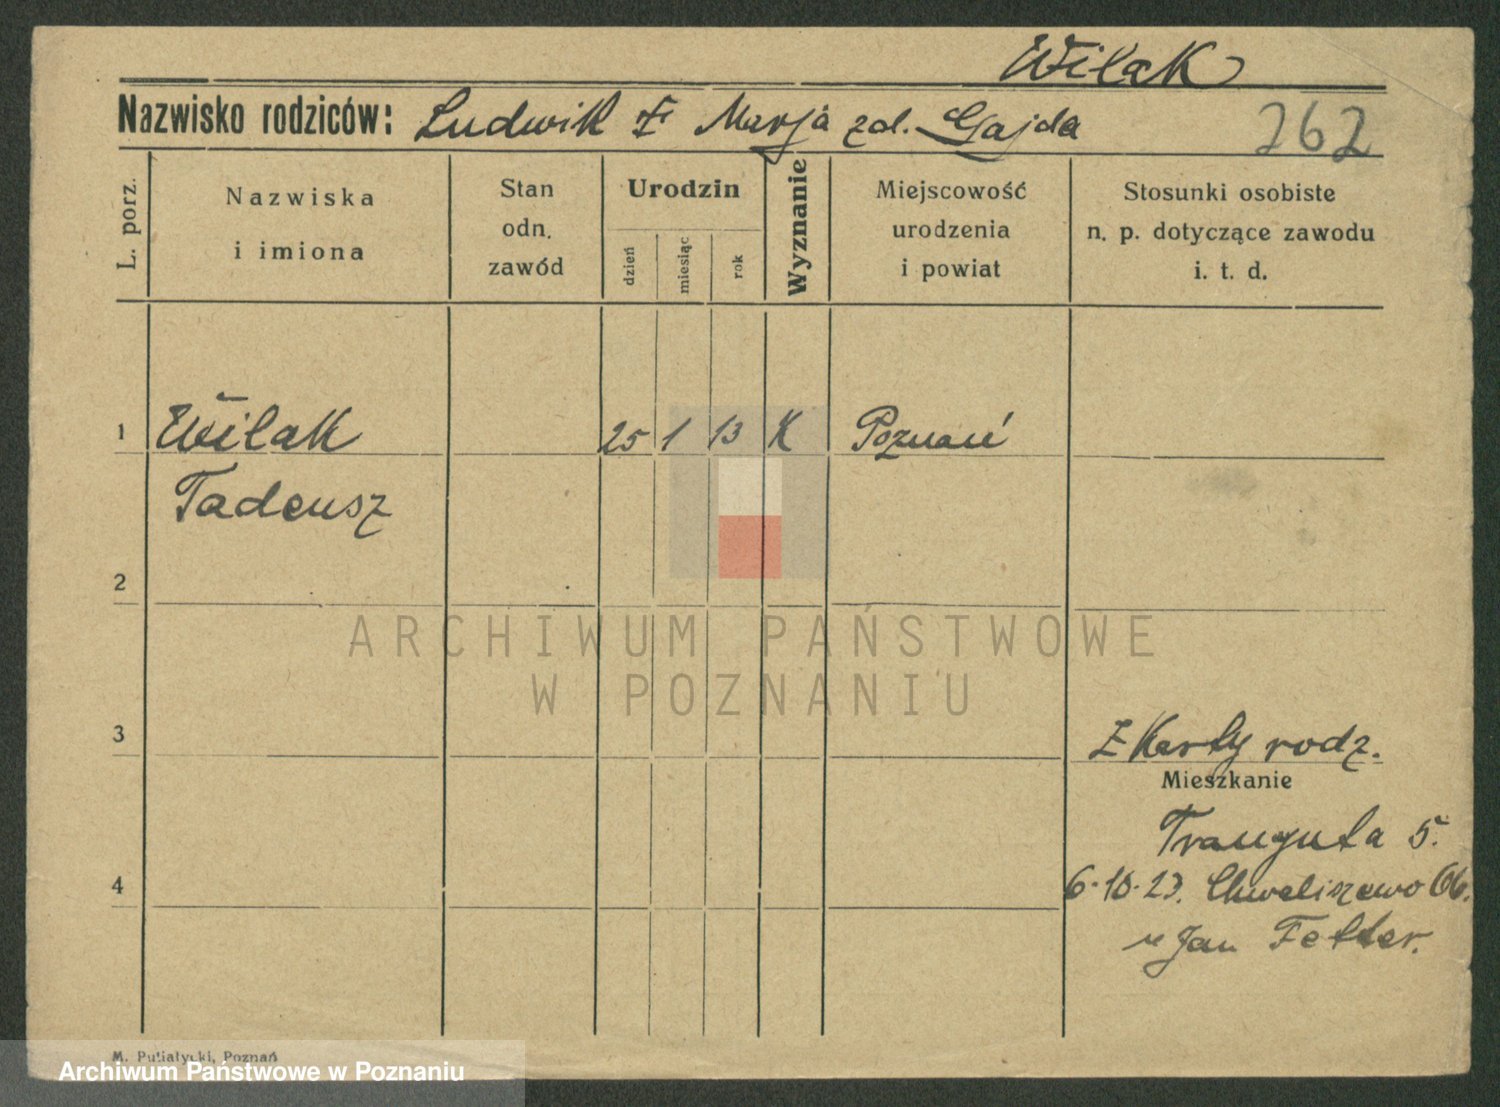 Wilak
Nazwisko rodziców: Ludwik i Marja zd. Gajda
262
L. porz.
Nazwiska i imiona
Stan odn. zawód
Urodzin
dzień miesiąc rok
Wyznanie
Miejscowość urodzenia i powiat
Stosunki osobiste n. p. dotyczące zawodu i. t. d.
1 Wilak 25 1 13 K Poznań
Tadeusz
2
ARCHIWUM PAŃSTWOWE
W POZNANIU
3
Z Karty rodz.
Mieszkanie
Trauguta 5.
4
6.10.23. Chwaliszewo 66.
u Jan Fetter.
M. Putiatycki, Poznań
Archiwum Państwowe w Poznaniu